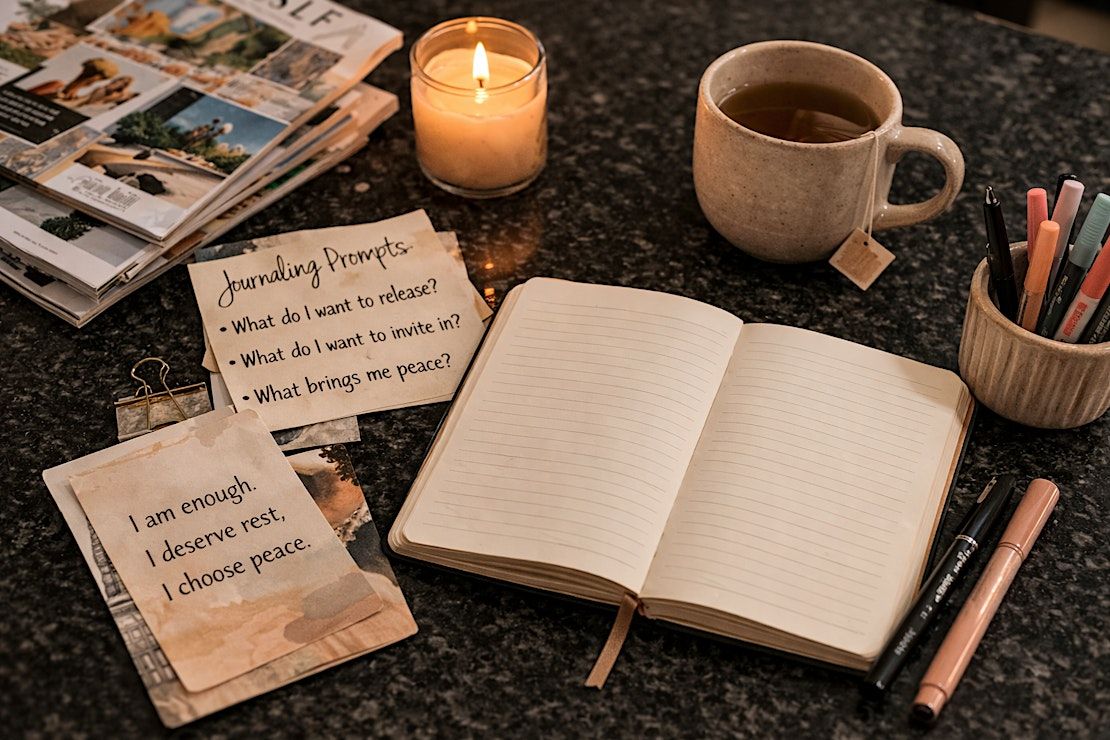 Journaling Prompts
• What do I want to release?
• What do I want to invite in?
• What brings me peace?
I am enough.
I deserve rest,
I choose peace.